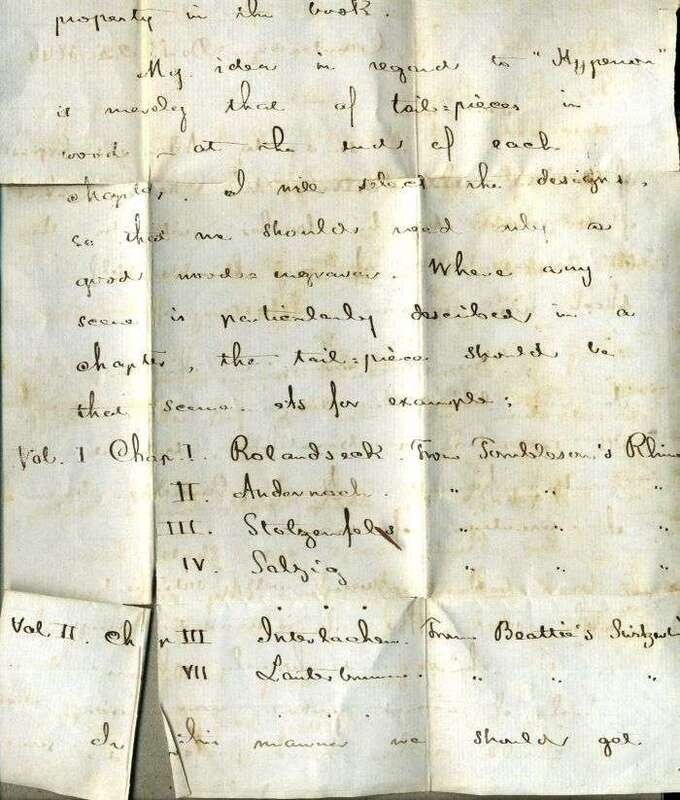 property in the book.
My idea in regard to "Hyperion"
is merely that of tail=pieces in
wood - at the ends of each
chapter. I will select the designs,
so that we should need only a
good wood=engraver. Where any
scene is particularly described in a
chapter, the tail=piece should be
that scene. As for example;
Vol. I Chap. I. Rolandseck. From Tombleson's Rhine
II. Andernach. " " "
III. Stolzenfels " " "
IV. Salzig " " "
. . .
Vol II. Chap III Interlachen. From Beattie's Switzerl
VII Lauterbrunnen. " " "
. . .
In this manner we should get